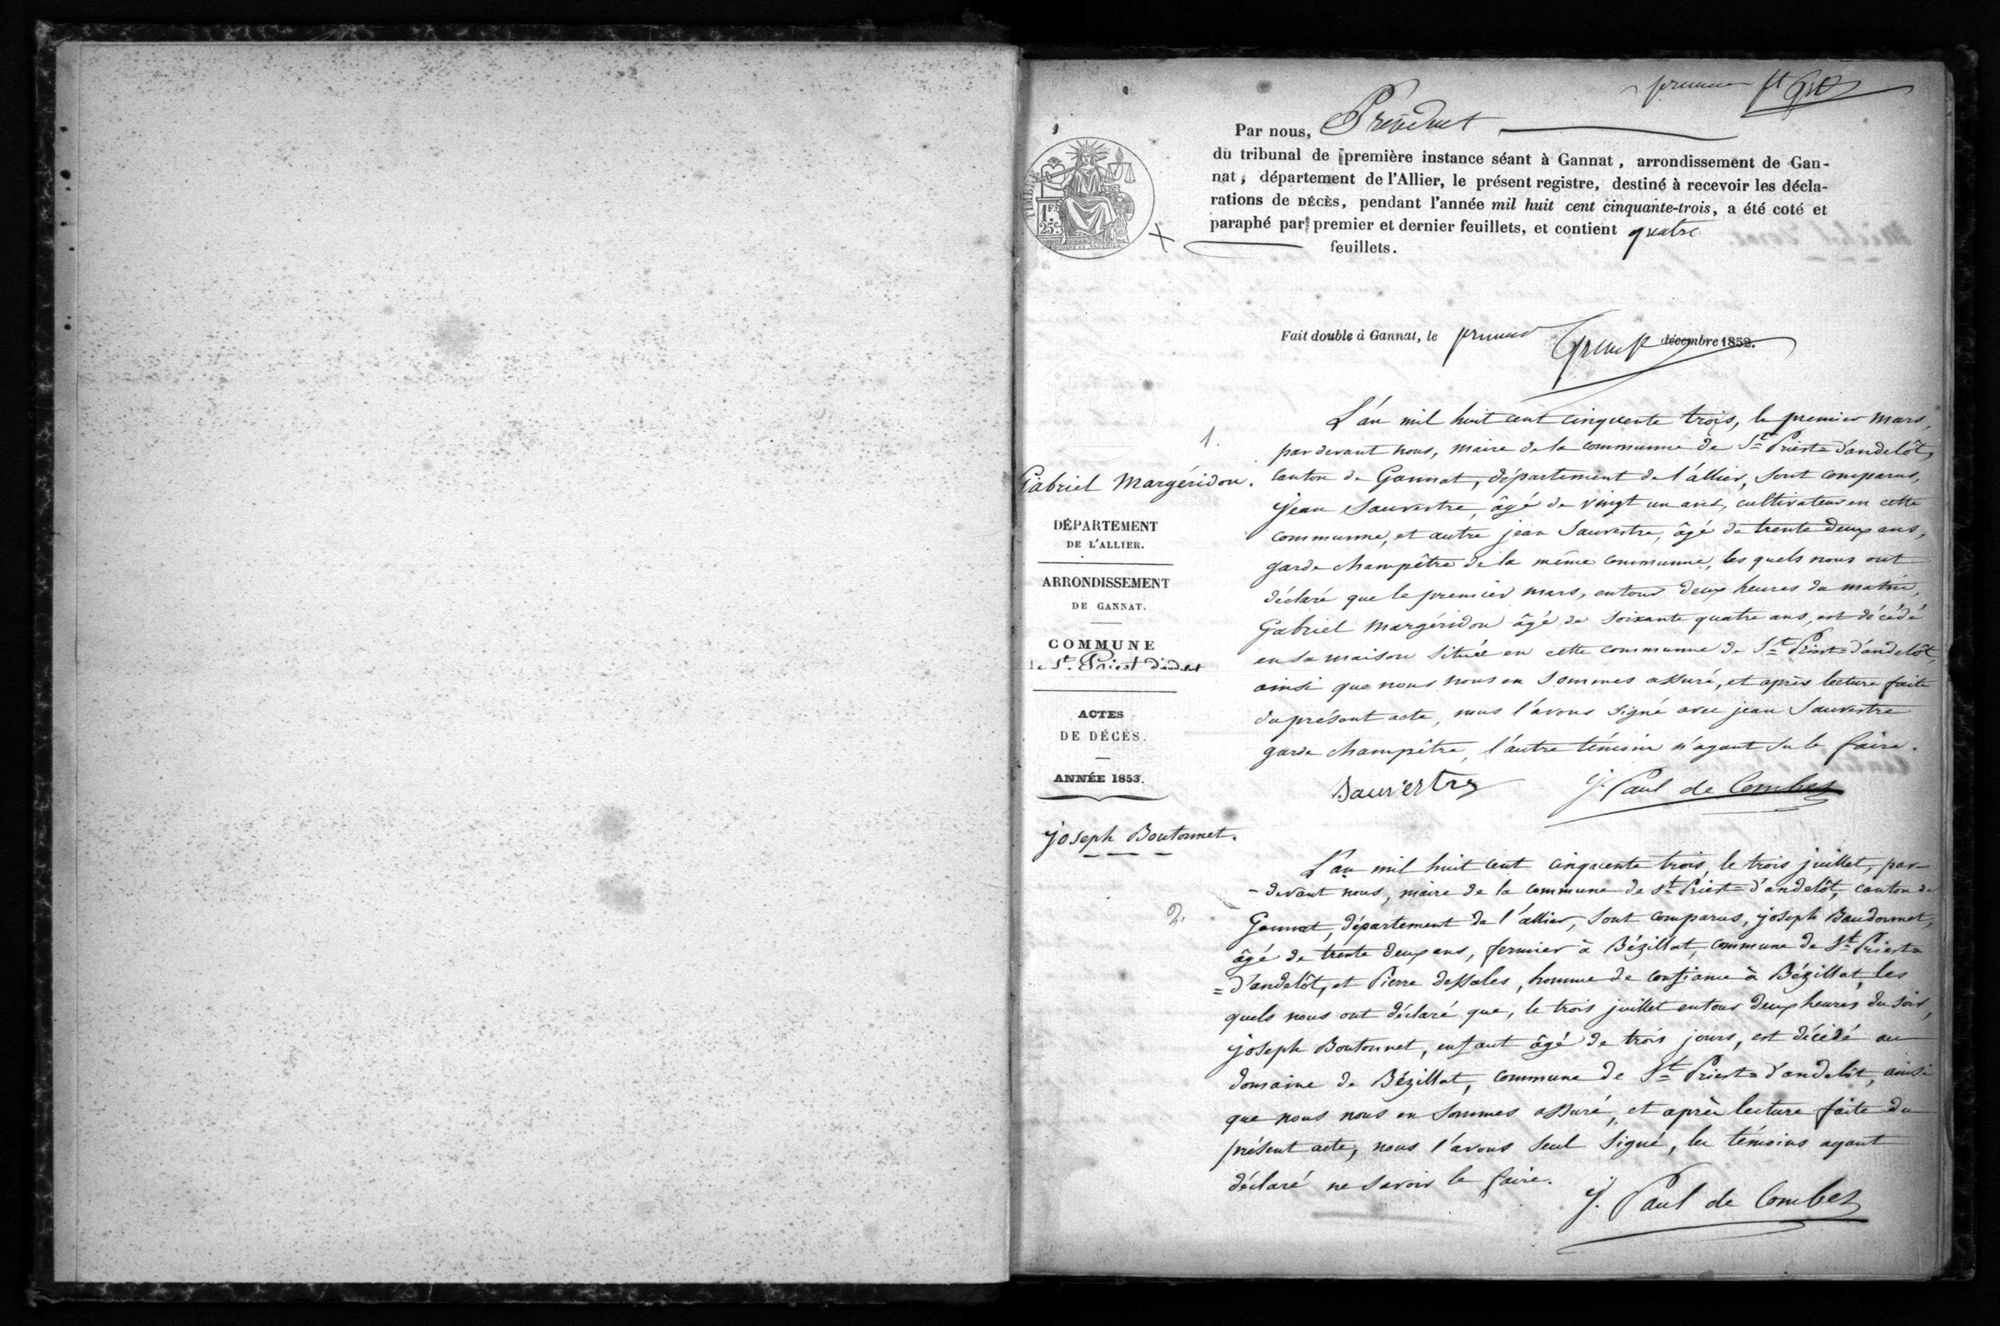 premier ft
Par nous, Président
du tribunal de première instance séant à Gannat, arrondissement de Gan-
nat, département de l'Allier, le présent registre, destiné à recevoir les décla-
rations de DÉCÈS, pendant l'année mil huit cent cinquante-trois, a été coté et
paraphé par premier et dernier feuillets, et contient quatre
feuillets.
TIMBRE
1 F.
25 C.
Fait double à Gannat, le premier décembre 1852.
1.
Gabriel Margéridon.
DÉPARTEMENT
DE L'ALLIER.
ARRONDISSEMENT
DE GANNAT.
COMMUNE
de St. Priest d'andelot
ACTES
DE DÉCÈS.
ANNÉE 1853.
L'an mil huit cent cinquente trois, le premier mars,
pardevant nous, maire de la commune de St Priest d'andelôt,
canton de Gannat, département de l'allier, sont comparus,
jean Sauvestre, âgé de vingt un ans, cultivateur en cette
commune, et autre jean Sauvestre, âgé de trente deux ans,
garde champêtre de la même commune, les quels nous ont
déclaré que le premier mars, entour deux heures du matin,
Gabriel Margéridon âgé de soixante quatre ans, est décédé
en sa maison située en cette commune de St Priest=d'andelôt,
ainsi que nous nous en sommes assuré, et après lecture faite
du présent acte, nous l'avons signé avec jean Sauvestre
garde champêtre, l'autre témoin n'ayant su le faire.
Sauvestre J. Paul de Combes
joseph Boutonnet.
2.
L'an mil huit cent cinquente trois, le trois juillet, par-
-devant nous, maire de la commune de St Priest=d'andelôt, canton de
Gannat, département de l'allier, sont comparus, joseph Baudonnet,
âgé de trente deux ans, fermier à Bézillat, commune de St Priest=
=d'andelôt, et Pierre dessales, homme de confiance à Bézillat, les
quels nous ont déclaré que, le trois juillet entour deux heures du soir,
joseph Boutonnet, enfant âgé de trois jours, est décédé au
domaine de Bézillat, commune de St Priest=d'andelôt, ainsi
que nous nous en sommes assuré, et après lecture faite du
présent acte, nous l'avons seul signé, les témoins ayant
déclaré ne savoir le faire.
J. Paul de Combes